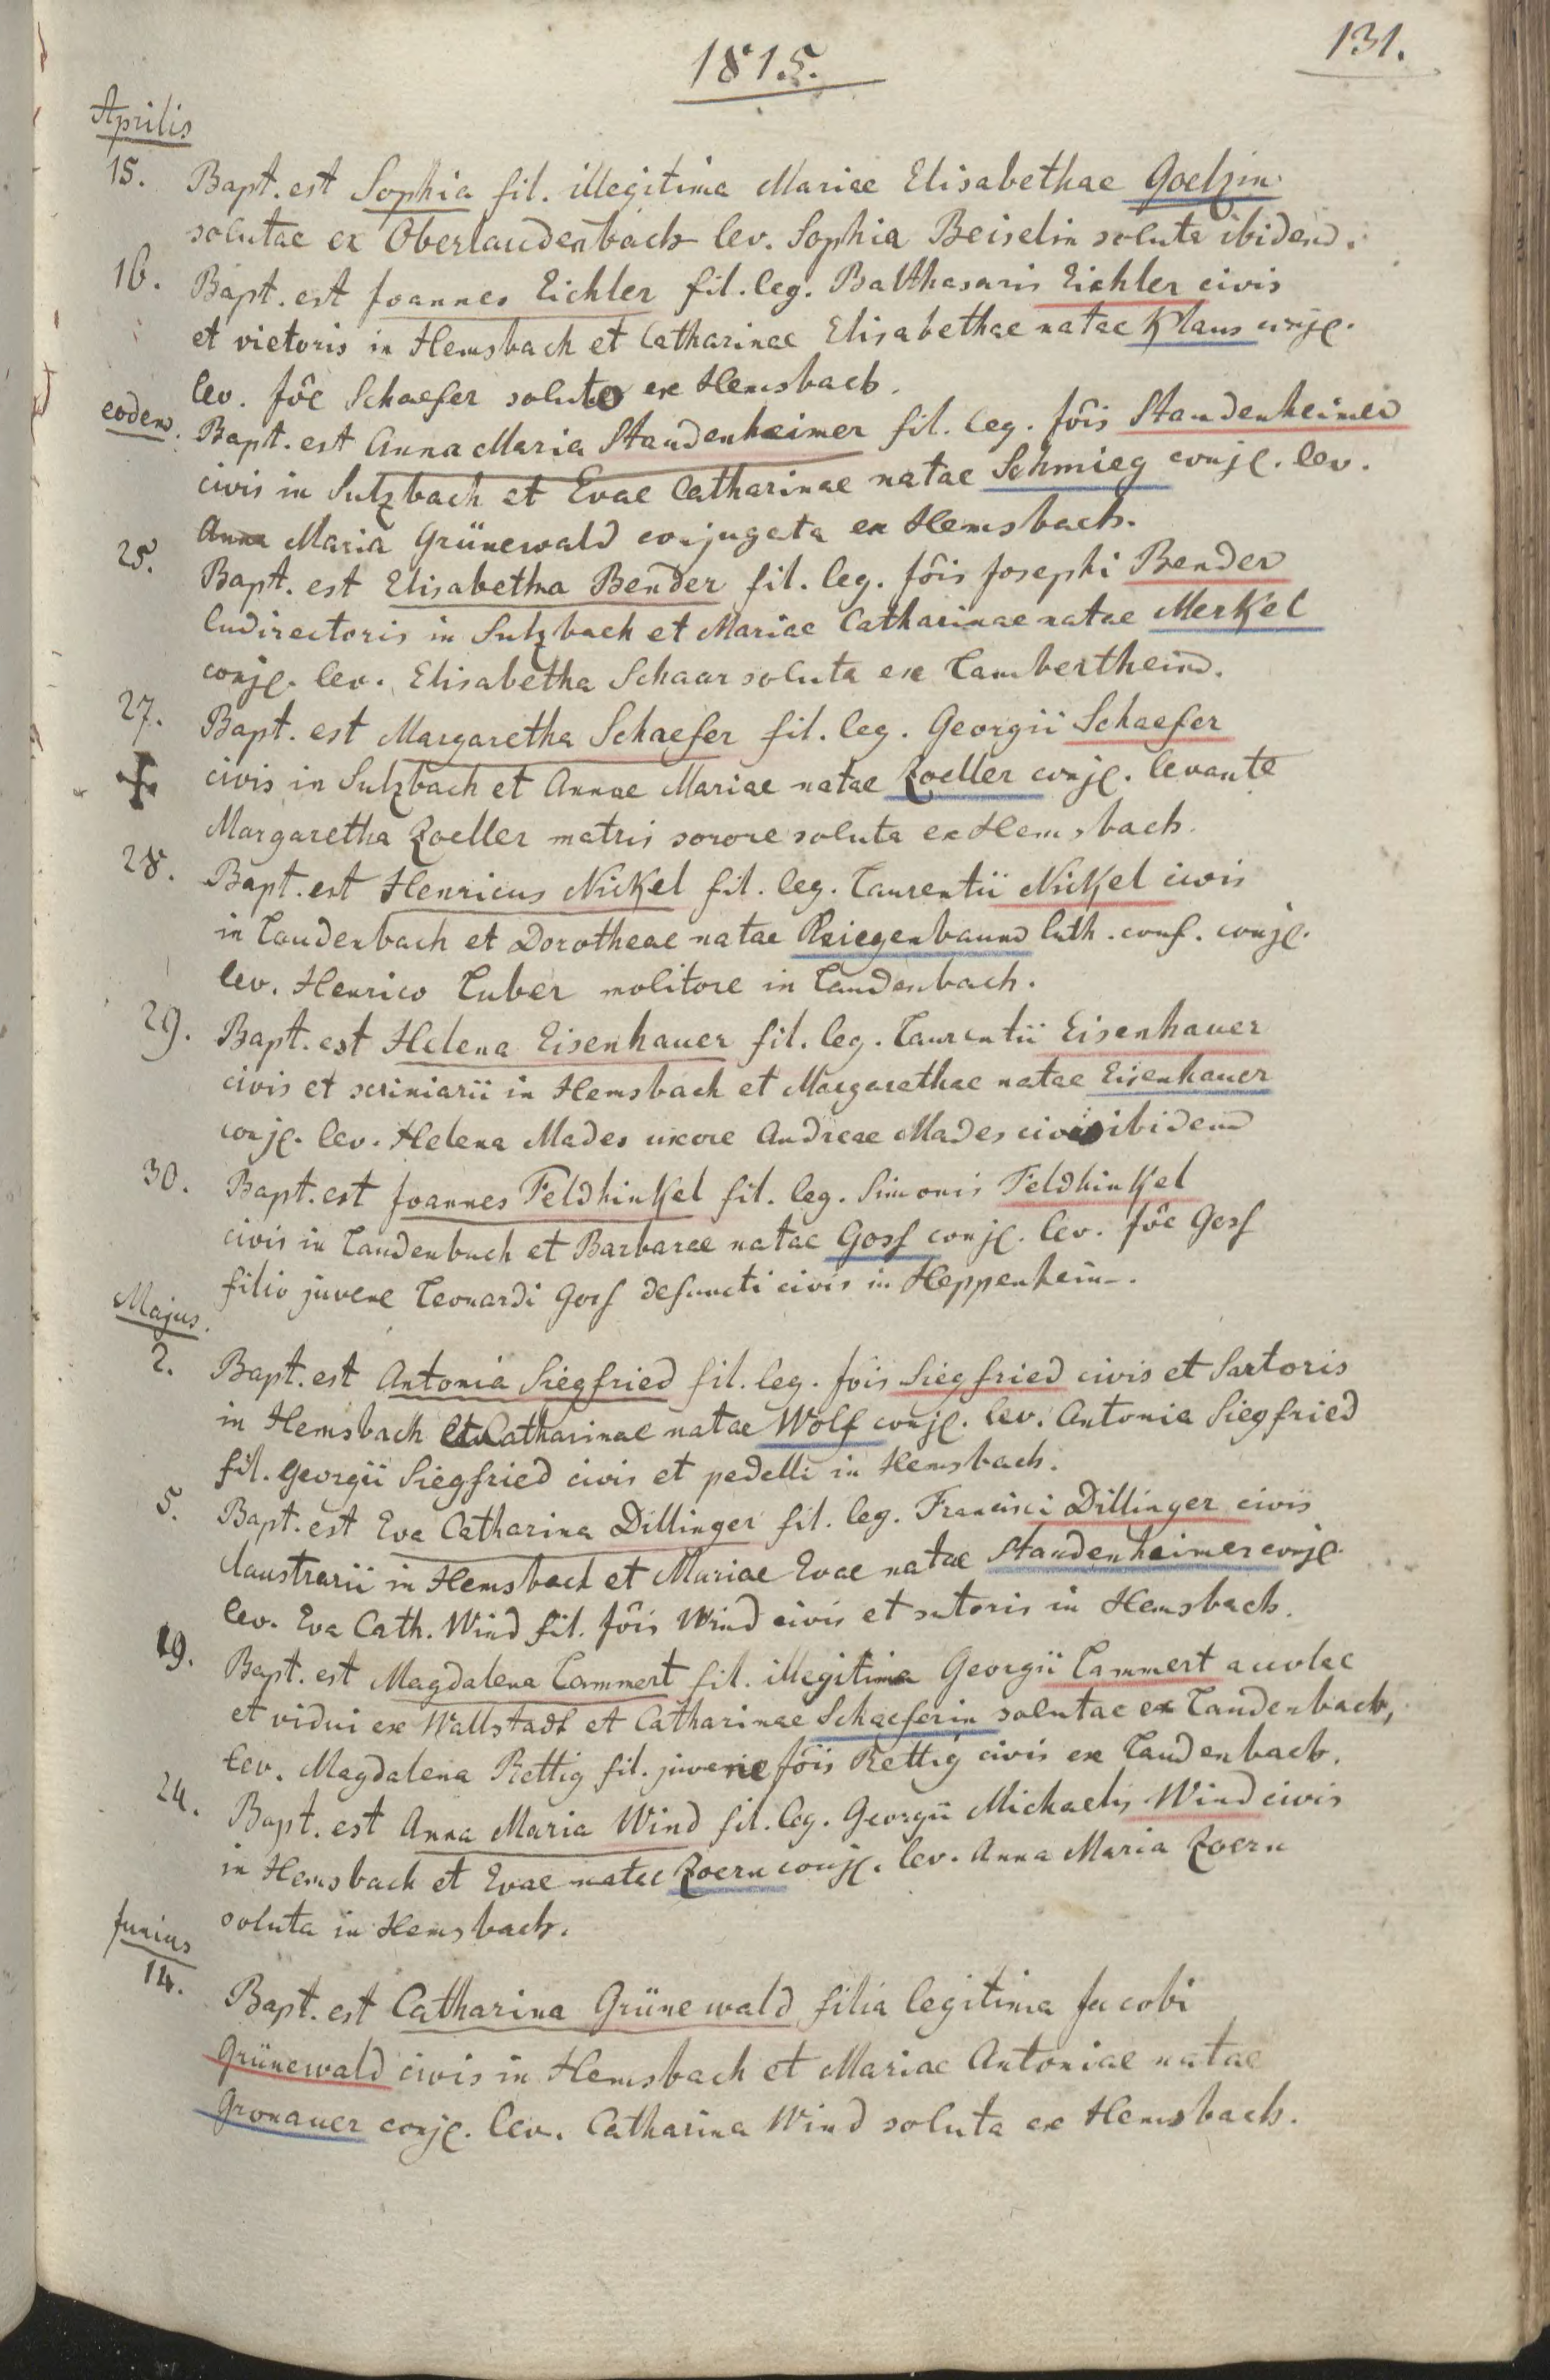 131.
1815.
Aprilis
15. Bapt. est Sophia fil. illegitima Mariae Elisabethae Goelzin
solutae ex Oberlaudenbach lev. Sophia Beiselin soluta ibidem.
16. Bapt. est Joannes Eichler fil. leg. Balthasaris Eichler civis
et vietoris in Hemsbach et Catharinae Elisabethae natae Klaus conjg.
lev. Jôe Schaefer soluto ex Hemsbach.
eodem. Bapt. est Anna Maria Standenheimer fil. leg. Jôis Standenheimer
civis in Sulzbach et Evae Catharinae natae Schmieg conjg. lev.
Anna Maria Grünewald conjugata ex Hemsbach.
25. Bapt. est Elisabetha Bender fil. leg. Jôis Josephi Bender
ludirectoris in Sulzbach et Mariae Catharinae natae Merkel
conjg. lev. Elisabetha Schaar soluta ex Lambertheim.
27. Bapt. est Margaretha Schaefer fil. leg. Georgii Schaefer
civis in Sulzbach et Annae Mariae natae Zoeller conjg. levante
Margaretha Zoeller matris sorore soluta ex Hemsbach.
28. Bapt. est Henricus Nickel fil. leg. Laurentii Nickel civis
in Laudenbach et Dorotheae natae Kriegenbaum luth. conf. conjg.
lev. Henrico Luber molitore in Laudenbach.
29. Bapt. est Helena Eisenhauer fil. leg. Laurentii Eisenhauer
civis et scriniarii in Hemsbach et Margarethae natae Eisenhauer
conjg. lev. Helena Mades uxore Andreae Mades civis ibidem
30. Bapt. est Joannes Feldhinkel fil. leg. Simonis Feldhinkel
civis in Laudenbach et Barbarae natae Goss conjg. lev. Jôe Goss
filio juvene Leonardi Goss defuncti civis in Heppenheim.
Majus.
2. Bapt. est Antonia Siegfried fil. leg. Jôis Siegfried civis et Sartoris
in Hemsbach et Catharinae natae Wolf conjg. lev. Antonia Siegfried
fil. Georgii Siegfried civis et pedelli in Hemsbach.
5. Bapt. est Eva Catharina Dillinger fil. leg. Francisci Dillinger civis
claustrarii in Hemsbach et Mariae Evae natae Standenheimer conjg.
lev. Eva Cath. Wind fil. Jôis Wind civis et sutoris in Hemsbach.
19. Bapt. est Magdalena Lammert fil. illegitima Georgii Lammert acolae
et vidui ex Wallstadt et Catharinae Schaeferin solutae ex Laudenbach,
lev. Magdalena Rettig fil. juvene Jôis Rettig civis ex Laudenbach.
24. Bapt. est Anna Maria Wind fil. leg. Georgii Michaelis Wind civis
in Hemsbach et Evae natae Zoern conjg. lev. Anna Maria Zoern
soluta in Hemsbach.
Junius
14. Bapt. est Catharina Grünewald filia legitima Jacobi
Grünewald civis in Hemsbach et Mariae Antoniae natae
Gronauer conjg. lev. Catharina Wind soluta ex Hemsbach.